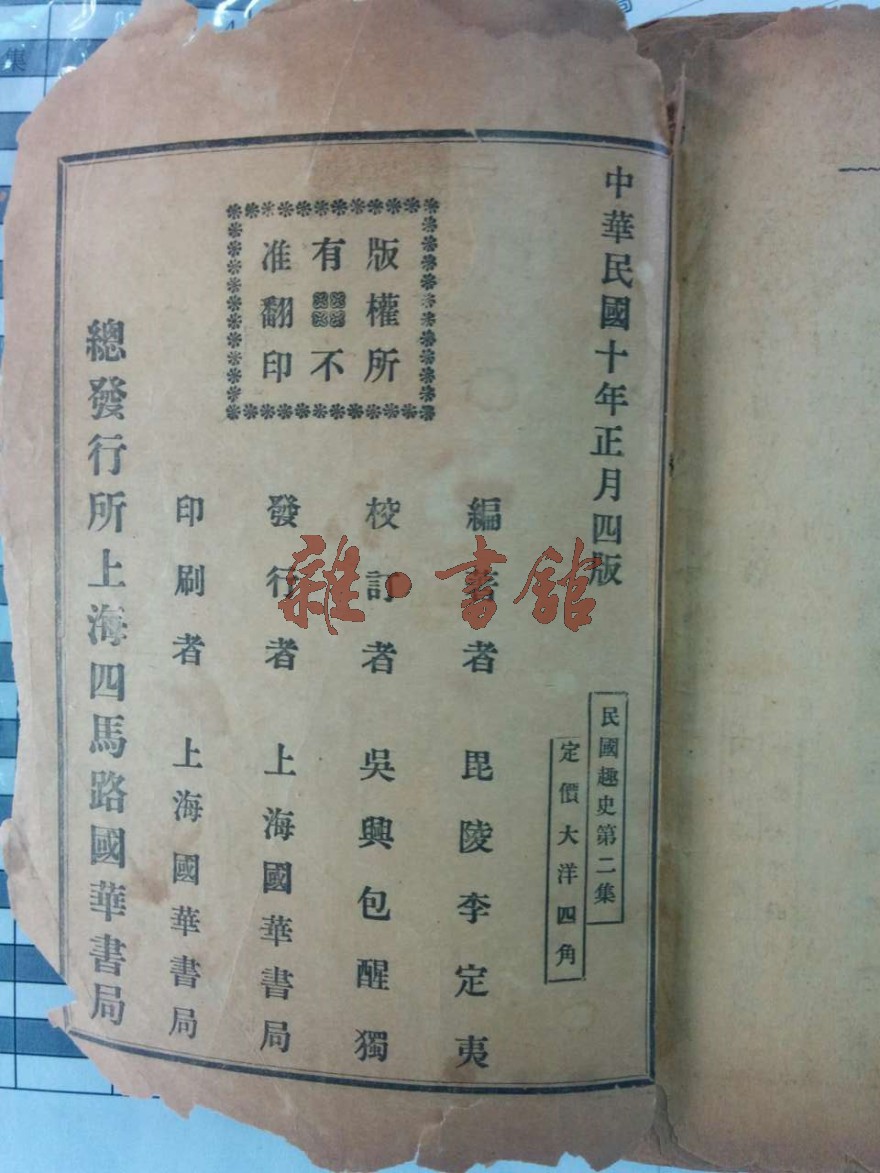 中華民國十年正月四版
民國趣史第二集
定價大洋四角
編著者 毘陵李定夷
校訂者 吳興包醒獨
發行者 上海國華書局
印刷者 上海國華書局
版權所
有不
准翻印
總發行所上海四馬路國華書局
雜·書館
集